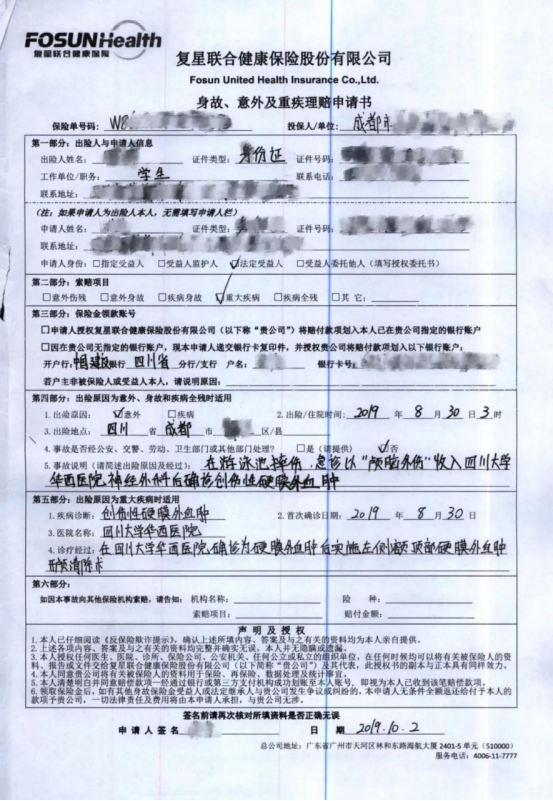 FOSUNHealth
复星联合健康保险
复星联合健康保险股份有限公司
Fosun United Health Insurance Co.,Ltd.
身故、意外及重疾理赔申请书
保险单号码: W8 投保人/单位: 成都市
第一部分：出险人与申请人信息
出险人姓名: 证件类型: 身份证 证件号码:
工作单位/职务: 学生 联系电话:
联系地址:
(注: 如果申请人为出险人本人，无需填写申请人栏)
申请人姓名: 证件类型: 证件号码:
联系地址:
申请人身份: □指定受益人 □受益人监护人 ☑法定受益人 □受益人委托他人（填写授权委托书）
第二部分：索赔项目
□意外伤残 □意外身故 □疾病身故 ☑重大疾病 □疾病全残 □其 它:
第三部分：保险金领款账号
□申请人授权复星联合健康保险股份有限公司（以下称“贵公司”）将赔付款项划入本人已在贵公司指定的银行账户
□因在贵公司无指定的银行账户，现本申请人递交银行卡复印件，并授权贵公司将赔付款项划入以下银行账户:
开户行: 中国建设银行 四川省 分行/支行 户名: 银行卡号:
若户主非被保险人或受益人本人，请说明原因:
第四部分：出险原因为意外、身故和疾病全残时适用
1. 出险原因: ☑意外 □疾病 2. 出险/住院时间: 2019 年 8 月 30 日 3时
3. 出险地点: 四川 省 成都 市 区/县
4. 事故是否经公安、交警、劳动、卫生部门或其他部门处理? □是（请提供） ☑否
5. 事故说明（请简述出险原因及经过）: 在游泳池摔伤,急诊以“颅脑外伤”收入四川大学
华西医院,神经外科后确诊创伤性硬膜外血肿
第五部分：出险原因为重大疾病时适用
1. 疾病诊断: 创伤性硬膜外血肿 2. 首次确诊日期: 2019 年 8 月 30 日
3. 医院名称: 四川大学华西医院
4. 诊疗经过: 在四川大学华西医院,确诊为硬膜外血肿后实施左侧额顶部硬膜外血肿
清除术
第六部分：
如因本事故向其他保险机构索赔，请告知: 机构名称: 险 种:
索赔项目: 赔付金额:
声 明 及 授 权
1. 本人已仔细阅读《反保险欺诈提示》，确认上述所填内容、答案及与之有关的资料均为本人亲自提供.
2. 上述各项内容、答案及与之有关的资料均完整并确实无误，本人并无隐瞒或遗漏.
3. 本人授权任何医生、医院、诊所、保险公司、公安机关、任何公立或私立的组织单位，在任何时候均可以将有关被保险人的资
料、报告或文件交给复星联合健康保险股份有限公司（以下简称“贵公司”）及其代表，此授权书的副本与正本具有同样效力.
4. 本人同意贵公司将有关被保险人的资料用于保险、再保险、数据处理及统计事宜.
5. 本人清楚明白并同意赔偿款项一经通过银行或第三方支付机构成功划账至本人账号，即视为本人已收到该笔赔偿款项.
6. 领取保险金后，如有其他身故保险金受益人或法定继承人与贵公司发生争议或纠纷的，本申请人无条件全额退还给付予本人的
款项予贵公司，一切法律责任及费用将由本申请人承担，与贵公司无涉.
签名前请再次核对所填资料是否正确无误
申 请 人 签 名 日 期 2019.10.2
总公司地址: 广东省广州市天河区林和东路海航大厦 2401-5 单元（510000）
服务电话: 4006-11-7777